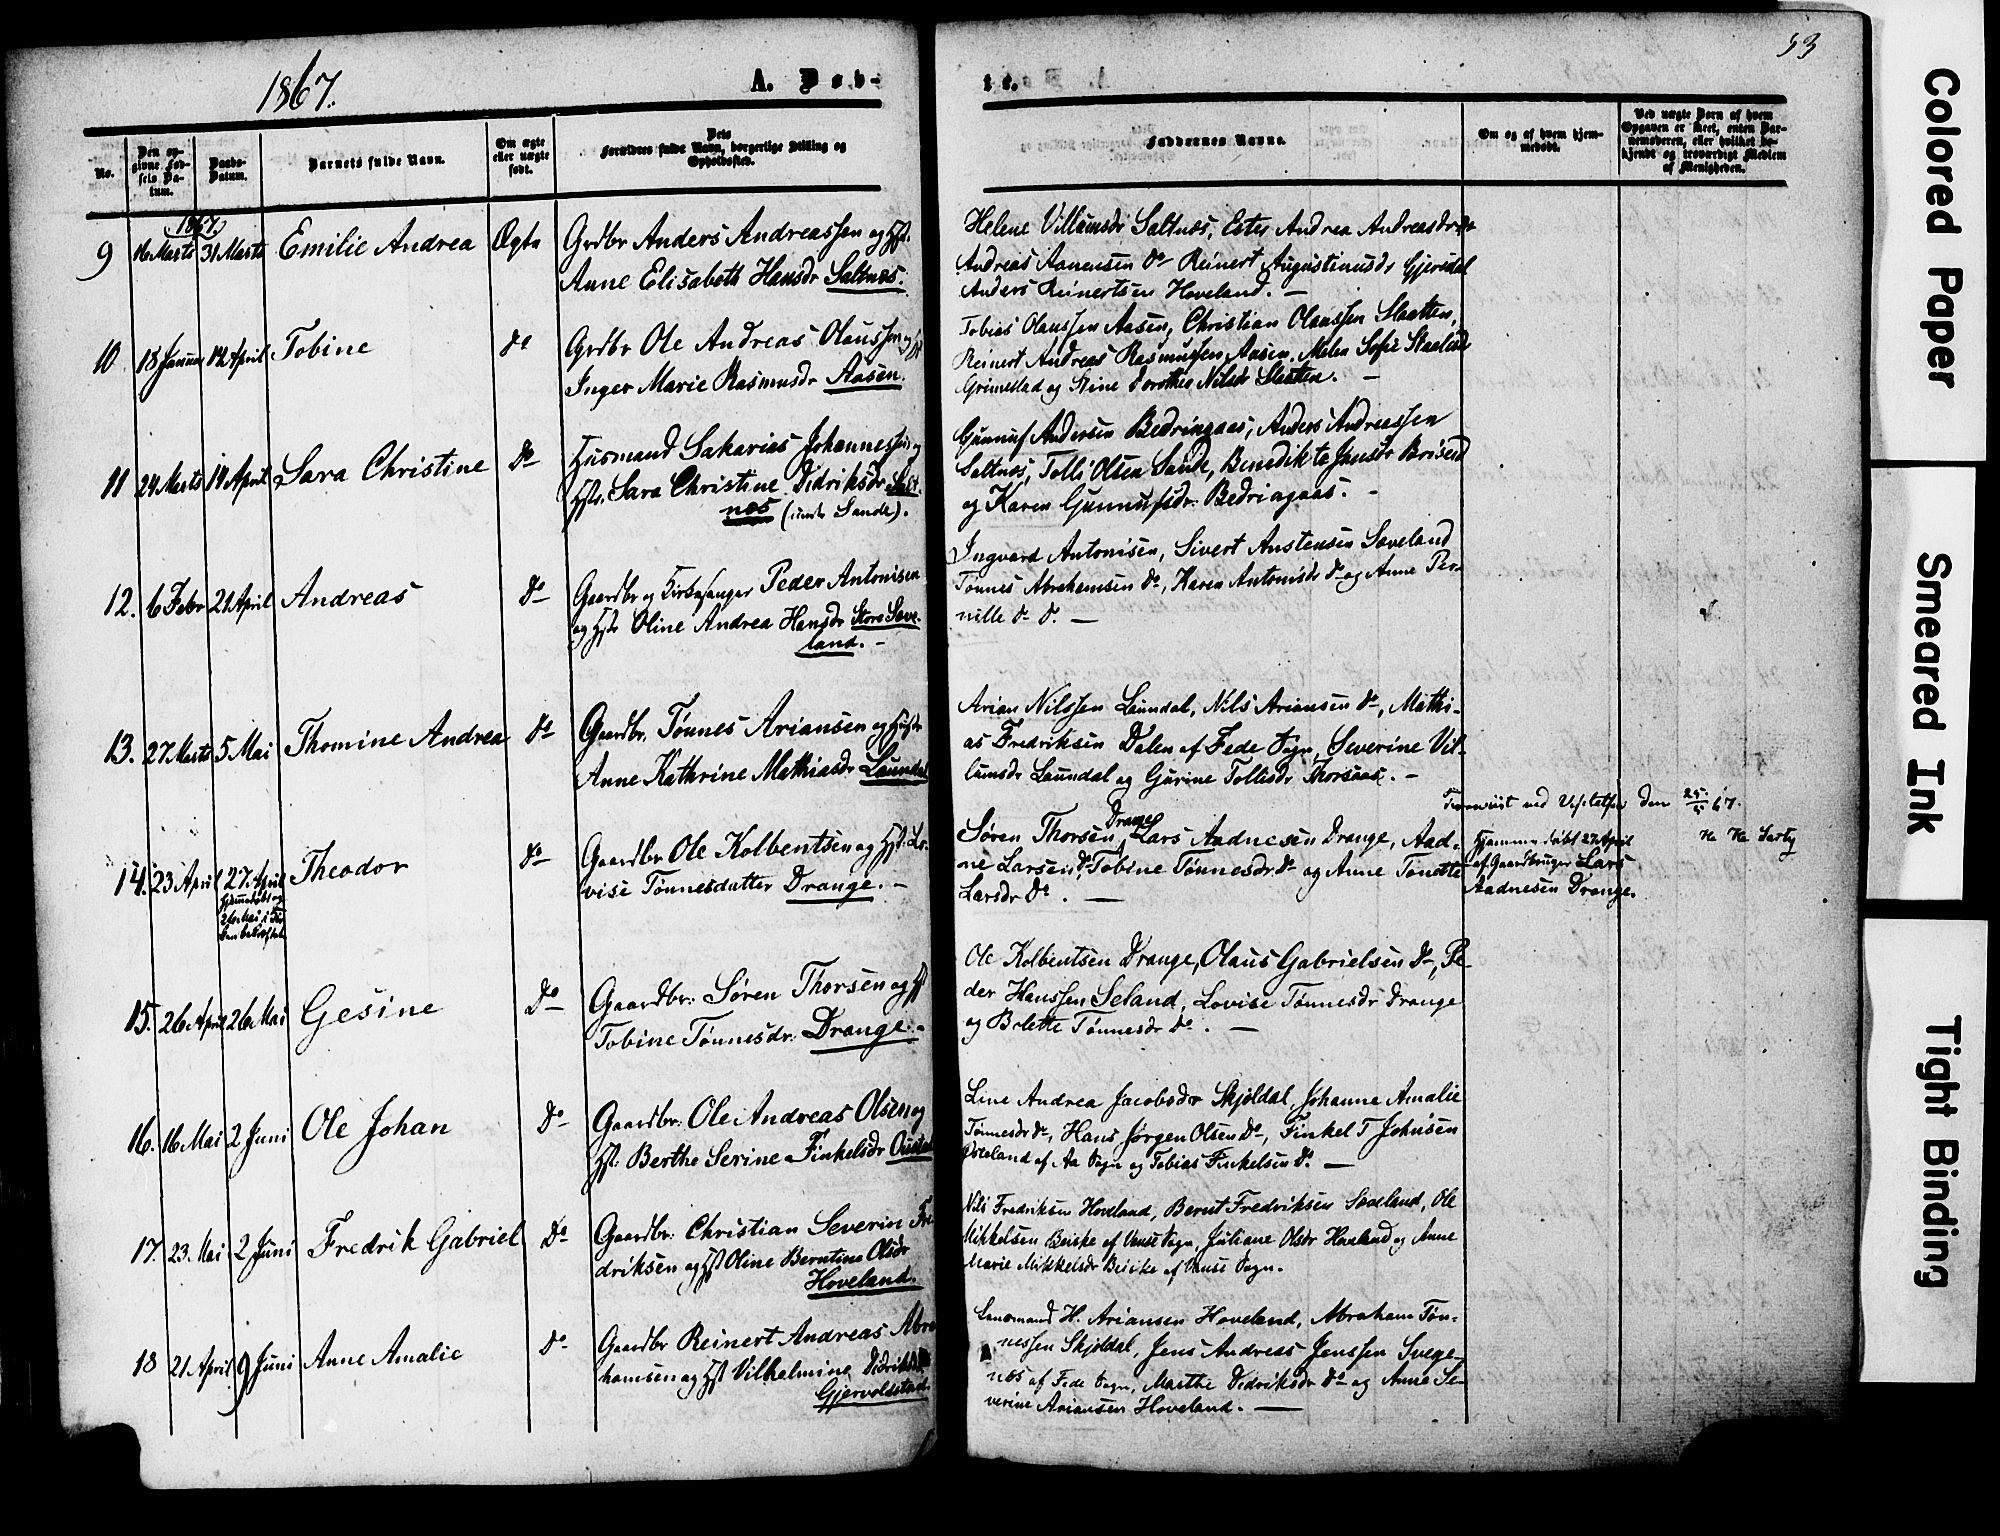 1867.
A. Døb-
te.
53
No.
Den opgivne Fødsels Datum.
Daabs-Datum.
Barnets fulde Navn.
Om ægte eller uægte født.
Forældres fulde Navn, borgerlige Stilling og Opholdssted.
Faddernes Navne.
Om og af hvem hjemmedøbt.
Ved uægte Børn af hvem Opgaven er skeet, enten Barnemoderen, eller hvilket bekjendt og troværdigt Medlem af Menigheden.
1867.
9 16 Marts 31 Marts Emilie Andrea Ægte Grdbr Anders Andreassen og Hst.
Anne Elisabeth Hansdr Saltnes.
Helene Villumsdr Saltnes, Ester Andrea Andreasdr
Andreas Aanensen Do Reinert Augustinusdr Gjersdal
Anders Reinertsen Hoveland. —
10 18 Januar 12 April Tobine Do Grdbr Ole Andreas Olaussen og Hst
Inger Marie Rasmusdr Aasen.
Tobias Olaussen Aasen, Christian Olaussen Slaatten,
Reinert Andreas Rasmussen Aasen, Malen Sofie
Grimestad og Stine Dorothea Nilsdr Slaatten. —
11 24 Marts 14 April Sara Christine Do Husmand Sakarias Johannessen og
Hst. Sara Christine Didriksdr Salt
nes (under Sande).
Gunnuf Andersen Bedringaas, Anders Andreassen
Saltnes, Tolli Olsen Sande, Benedikte Jansdr Briseid
og Karen Gunnufsdr Bedringaas. —
12. 6 Febr 21 April Andreas Do Gaardbr og Kirkesanger Peder Antonisen
og Hst Oline Andrea Hansdr Store Save-
land. —
Ingvard Antonisen, Sivert Anstensen Saveland
Tønnes Abrahamsen Do, Karen Antonisdr Do og Anne Per-
nille Do D. —
13. 27 Marts 5 Mai Thomine Andrea Do Gaardbr. Tønnes Ariansen og Hustr
Anne Kathrine Mathiasdr Laundal
Arian Nilssen Laundal, Nils Ariansen Do, Mathi-
as Fredriksen Dalen af Fede Sogn, Severine Vil-
lumsdr Laundal og Gurine Tollisdr Thorsaas. —
Fremvist ved Visitatsen den 25/5 67.
14. 23 April 27 April Theodor Do Gaardbr Ole Kolbentsen og Hst. Lo-
hjemmedøbt og
26 Mai i Kir
ken bekræftet
vise Tønnesdatter Drange. —
Søren Thorsen Drange, Lars Aadnesen Drange, Aad-
ne Larsen Do, Tobine Tønnesdr Do og Anne Tonette
Larsdr Do. —
Hjemmedøbt 27 April
af Gaardbruger Lars
Aadnesen Drange.
15. 26 April 26 Mai Gesine Do Gaardbr: Søren Thorsen og Hst
Tobine Tønnesdr: Drange. —
Ole Kolbentsen Drange, Olaus Gabrielsen Do, Pe-
der Hanssen Seland, Lovise Tønnesdr Drange
og Bolette Tønnesdr Do. —
16. 16 Mai 2 Juni Ole Johan Do Gaardbr. Ole Andreas Olsen og
Hst: Berthe Serine Finkelsdr
Line Andrea Jacobsdr Skjoldal, Johanne Amalie
Tønnesdr Do, Hans Jørgen Olsen Do, Finkel T Johnsen
af Aa Sogn og Tobias Finkelsen Do. —
17. 23. Mai 2 Juni Fredrik Gabriel Do Gaardbr: Christian Severin Fre
driksen og Hst Oline Berntine Olsdr
Hoveland.
Nils Fredriksen Hoveland, Bernt Fredriksen Saveland, Ole
Mikkelsen af Vanse Sogn, Juliane Olsdr Hoveland og Anne
Marie Mikkelsdr af Vanse Sogn.
18 21 April 9 Juni Anne Amalie Do Gaardbr Reinert Andreas Abra
hamsen og Hst Vilhelmine Didriksdr
Gjervoldstad.
Lensmand H. Ariansen Hoveland, Abraham Tøn-
nessen Skjoldal, Jens Andreas Jenssen Svege-
nes af Fede Sogn, Marthe Didriksdr Do og Anne Se-
verine Ariansen Hoveland. —
Colored Paper
Smeared Ink
Tight Binding